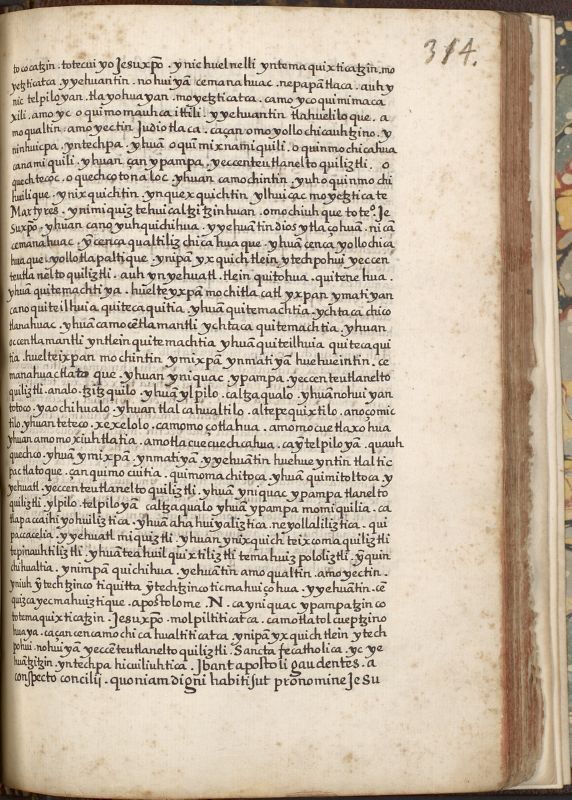 314.
tococatzin . totecuiyo Jesuxpõ . ynic huelnelli yntemaquixticatzin . mo
yetzticatca . yyehuantin . nohuiyã cemanahuac . nepapãtlaca . auh y
nic telpiloyan . tlayohuayan . moyetzticatca . camo ycoquimimaca
xili . amo yc oquimomauhcaittili . yyehuantin tlahueliloque . a
moqualtin . amo yectin Judiotlaca . caçan omoyollochicauhtzino . y
ninhuicpa . yntechpa . yhuã oquimixnamiquili . oquinmochicahua
canamiquili . yhuan çan ypampa . yeccenteutlaneltoquiliztli . o
quechtecoc . oquechcotonaloc . yhuan camochintin . yuh oquinmochi
huilique . ynixquichtin . ynquexquichtin ylhuicac moyetzticate
Martyres . ynimiquiztehuicaltzitzinhuan . omochiuhque tote.º Je
suxpõ . yhuan cano yuh quichihua . yyehuãtin dios ytlaçohuã . nicã
cemanahuac . ỹcenca qualtiliz chicahuaque . yhuã cenca yollochica
huaque . yollotlapaltique . ynipã yxquich tlein ytechpohui yeccen
teutlaneltoquiliztli . auh ynyehuatl . tlein quitohua . quitenehua .
yhuã quitemachtiya . huelteyxpã mochitlacatl yxpan ymatiyan
cano quiteilhuia . quitecaquitia . yhuã quitemachtia . ychtaca chico
tlanahuac . yhuã camo cẽtlamantli ychtaca quitemachtia . yhuan
occentlamantli yntlein quitemachtia yhuã quiteilhuia quitecaqui
tia . huelteixpan mochintin ymixpã ynmatiyã huehueintin . ce
manahuactlatoque . yhuan yniquac . ypampa . yeccenteutlanelto
quiliztli . analo . tzitzquilo . yhuã ylpilo . caltzaqualo . yhuã nohuiyan
totoco . yaochihualo . yhuan tlalcahualtilo . altepequixtilo . anoçomic
tilo . yhuan teteco . xexelolo . camo mo çotlahua . amo mocuetlaxohua
yhuan amo moxiuhtlatia . amo tlacuecuechcahua . caỹtelpiloyãn . quauh
quechco . yhuã ymixpã . ynmatiyã . yyehuãtin huehueyntin tlaltic
pactlatoque . çan quimocuitia . quimomachitoca . yhuã quimitoltoca y
yehuatl . yeccenteutlaneltoquiliztli . yhuã yniquac ypampa tlanelto
quiliztli . ylpilo . telpiloyã caltzaqualo yhuã ypampa momiquilia . ca
tlapaccaihiyohuiliztica . yhuã ahahuiyaliztica . neyollaliliztica . qui
paccacelia . yyehuatl miquiztli . yhuan ynixquich teixcomaquiliztli
tepinauhtiliztli . yhuã teahuilquixtiliztli temahuizpololiztli . ỹquin
chihualtia . ynimpã quichihua . yehuãtin amo qualtin . amo yectin .
yniuh ỹtechtzinco tiquitta ỹtechtzinco ticmahuiçohua . yyehuãtin . cẽ
quizcayecmahuiztique . apostolome . N . ca yniquac ypampatzinco
totemaquixticatzin . Jesuxpõ . molpiltiticatca . camo tlatolcueptzino
huaya . caçan cencamochicahualtiticatca . ynipã yxquich tlein ytech
pohui . nohuiyã yeccẽteutlaneltoquiliztli . Sancta fe catholica . yc ye
huãtzitzin . yntechpa hicuiliuhtica . Jbant apostoli gaudentes . a
conspecto concilij . quoniam digni habiti sut pro nomine Jesu